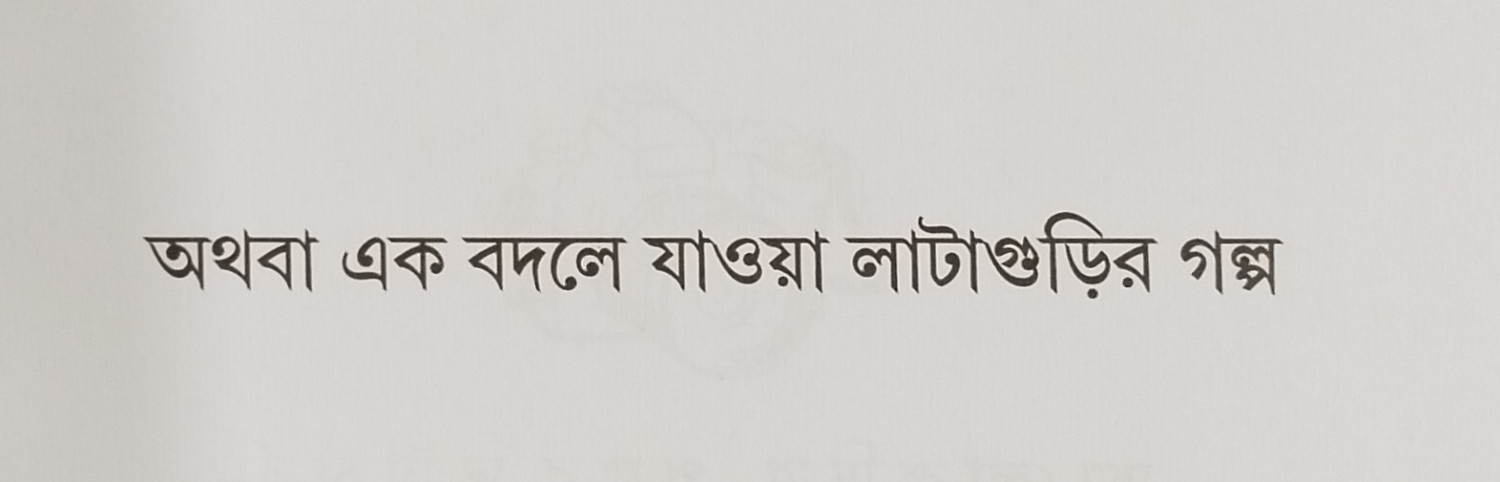 অথবা এক বদলে যাওয়া লাটাগুড়ির গল্প